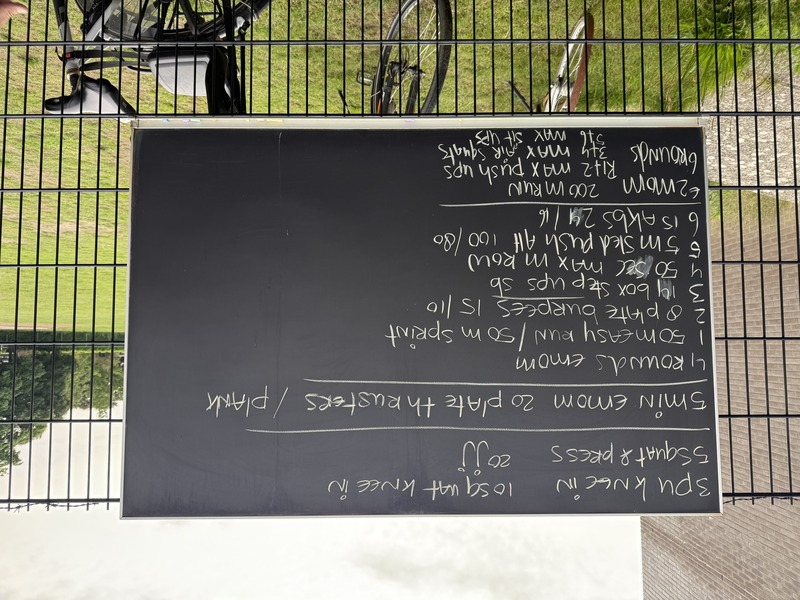 3 pu knee in 10 squat knee in
5 squat & press 20 JJ
5 min emom 20 plate thrusters / plank
4 rounds emom
1 50m easy run / 50 m sprint
2 8 plate burpees 15/10
3 14 box step ups sb
4 50 sec max m row
5 5m sled push AH 100/80
6 15 AKBS 24/16
e2mom 200m run
6 rounds R1+2 max push ups
3+4 max air squats
5+6 max sit ups